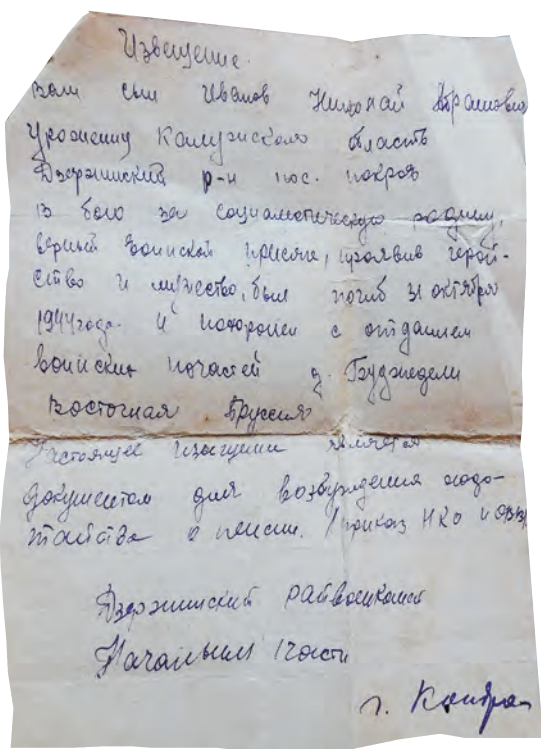 Извещение.
Ваш сын Иванов Николай Абрамович
Уроженец Калужского область
Дзержинский р-н пос. покров
В бою за социалистическую родину,
верный воинской присяге, проявив герой-
ство и мужество, был погиб 31 октября
1944 года. И похоронен с отданием
воинских почестей д. Буджедели
Восточная Пруссия
Настоящее извещении является
документом для возбуждения хода-
тайства о пенсии. Приказ НКО и
Дзержинский райвоенкомат
Начальник 1 части
г. Кондро